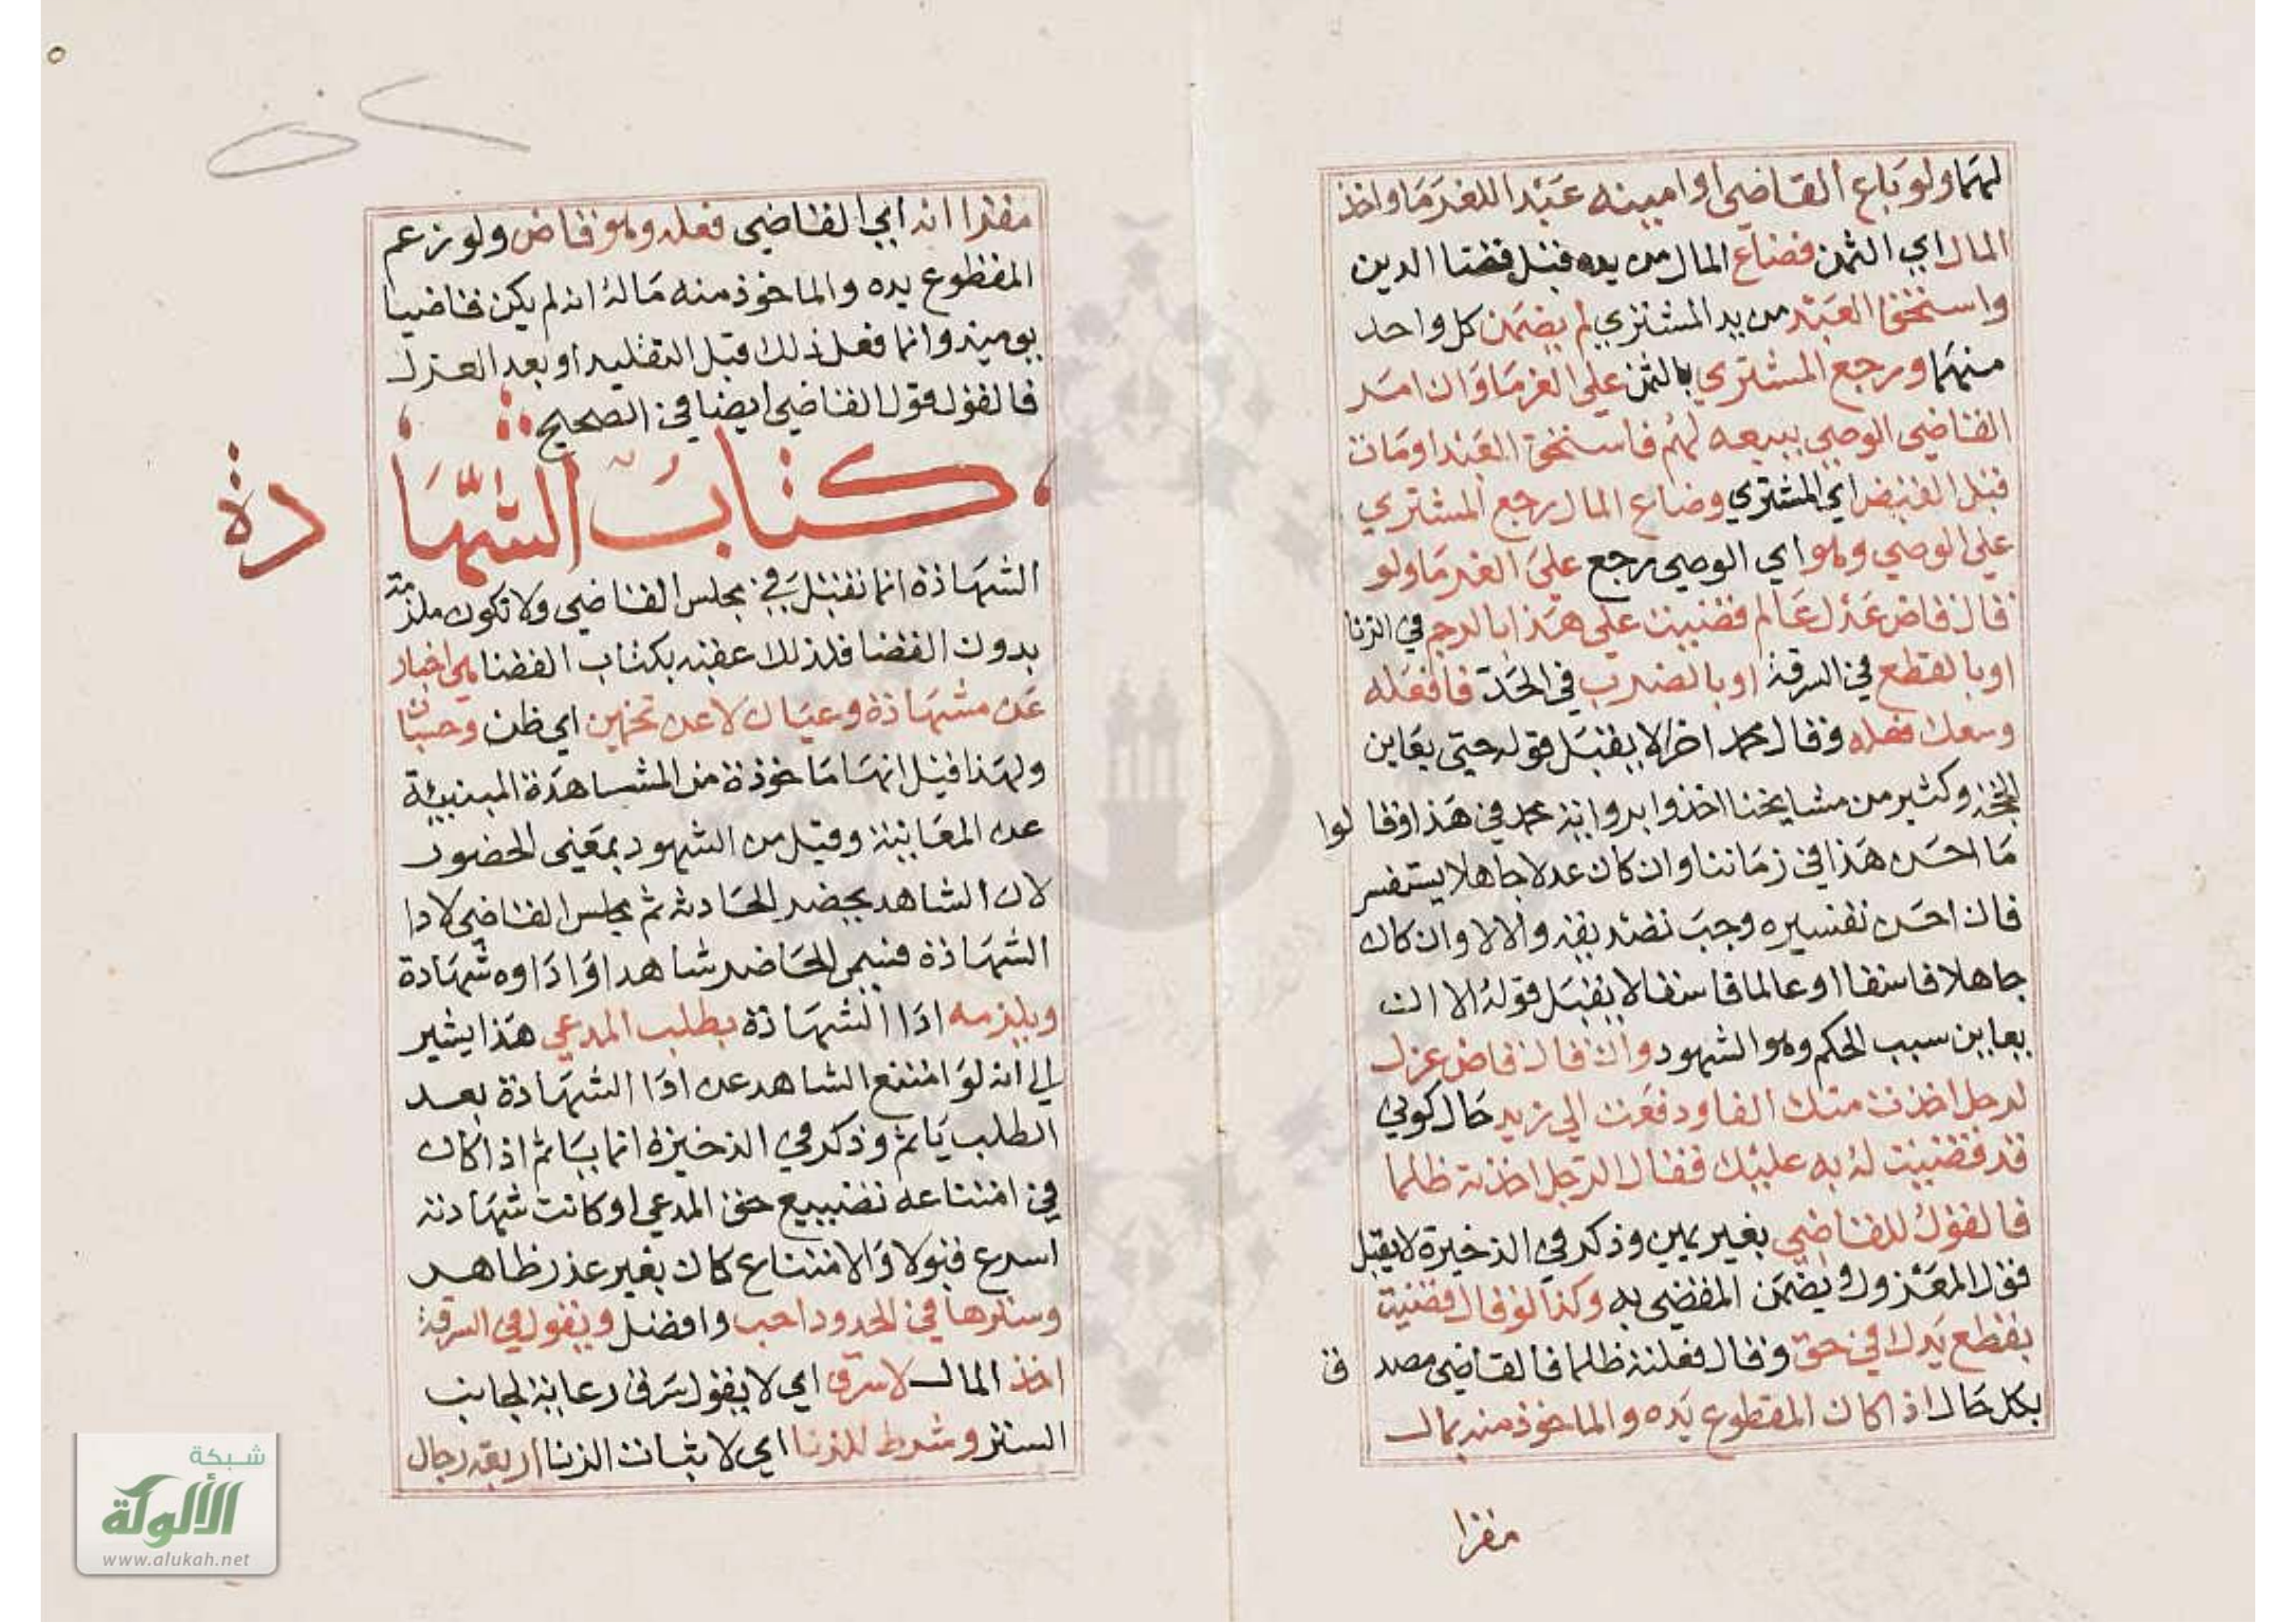 لهما ولو باع القاضي او امينه عبدا للغرما واخذ
المال اي الثمن فضاع المال من يده قبل قضا الدين
واستحق العبد من يد المشتري لم يضمن كل واحد
منهما ورجع المشتري بالثمن على الغرما وان امر
القاضي الوصي ببيعه لهم فاستحق العبد او مات
قبل القبض اي المشتري وضاع المال رجع المشتري
علي الوصي وهو اي الوصي رجع علي الغرما ولو
قال قاض عدل عالم قضيت علي هذا بالرجم في الزنا
او بالقطع في السرقة او بالضرب في الحد فافعله
وسعك فعله وقال محمد اخرا لا يقبل قوله حتي يعاين
الحجة وكثير من مشايخنا اخذوا برواية محمد في هذا وقالوا
ما احسن هذا في زماننا وان كان عدلا جاهلا يستفسر
فان احسن تفسيره وجب تصديقه والا لا وان كان
جاهلا فاسقا او عالما فاسقا لا يقبل قوله الا ان
يعاين سبب الحكم وهو الشهود وان قال قاض عزل
لرجل اخذت منك الفا ودفعت الي زيد حال كوني
قد قضيت له به عليك فقال الرجل اخذته ظلما
فالقول للقاضي بغير يمين وذكر في الذخيرة لا يقبل
قول المعزول ويضمن المقضي به وكذا لو قال قضيت
بقطع يدك في حق وقال فعلته ظلما فالقاضي مصدق
بكل حال اذا كان المقطوع يده والماخوذ منه مال
مقرا
مقرا انه اي القاضي فعله وهو قاض ولو زعم
المقطوع يده والماخوذ منه ماله انه لم يكن قاضيا
يوميذ وانما فعل ذلك قبل التقليد او بعد العزل
فالقول قول القاضي ايضا في الصحيح
كتاب الشهادة
الشهادة انما تقبل في مجلس القاضي ولا تكون ملزمة
بدون القضا فلذلك عقبه بكتاب القضا هي اخبار
عن مشهادة وعيان لا عن تخمين اي ظن وحسبان
ولهذا قيل انها ماخوذة من المشاهدة المبنيية
عن المعاينة وقيل من الشهود بمعني الحضور
لان الشاهد يحضر الحادثة ثم مجلس القاضي لادا
الشهادة فسمي الحاضر شاهدا واداوه شهادة
ويلزمه ادا الشهادة بطلب المدعي هذا يشير
الي انه لو امتنع الشاهد عن ادا الشهادة بعد
الطلب ياثم وذكر في الذخيرة انما ياثم اذا كان
في امتناعه تضييع حق المدعي او كانت شهادته
اسرع قبولا والامتناع كان بغير عذر ظاهر
وسترها في الحدود احب وافضل ويقول في السرقة
اخذ المال لا سرق اي لا يقول سرق رعاية لجانب
الستر وشرط للزنا اي لاثبات الزنا اربعة رجال
شبكة
الألوكة
www.alukah.net